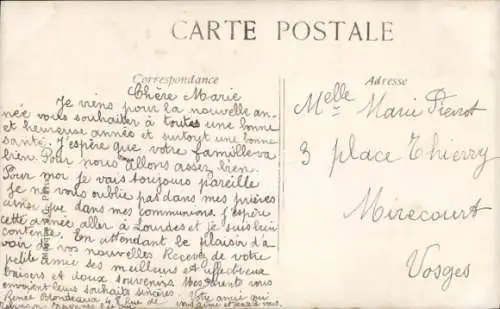 CARTE POSTALE
Correspondance
Adresse
Chère Marie
Je viens pour la nouvelle an-
née vous souhaiter à toutes une bonne
et heureuse année et surtout une bonne
santé. J'espère que votre famille va
bien. Pour nous allons assez bien.
Pour moi je vais toujours pareille
je ne vous oublie pas dans mes prières
ainsi que dans mes communions. J'espère
cette année aller à Lourdes et je suis bien
contente. En attendant le plaisir d'a
voir de vos nouvelles Recevez de votre
petite amie ses meilleurs et affectueux
baisers et doux souvenirs. Mes parents vous
envoient leurs souhaits sincères.
Renée Blondeaux 4 rue de
Votre amie qui
vous aime et
Melle Marie Pierrot
3 place Thierry
Mirecourt
Vosges